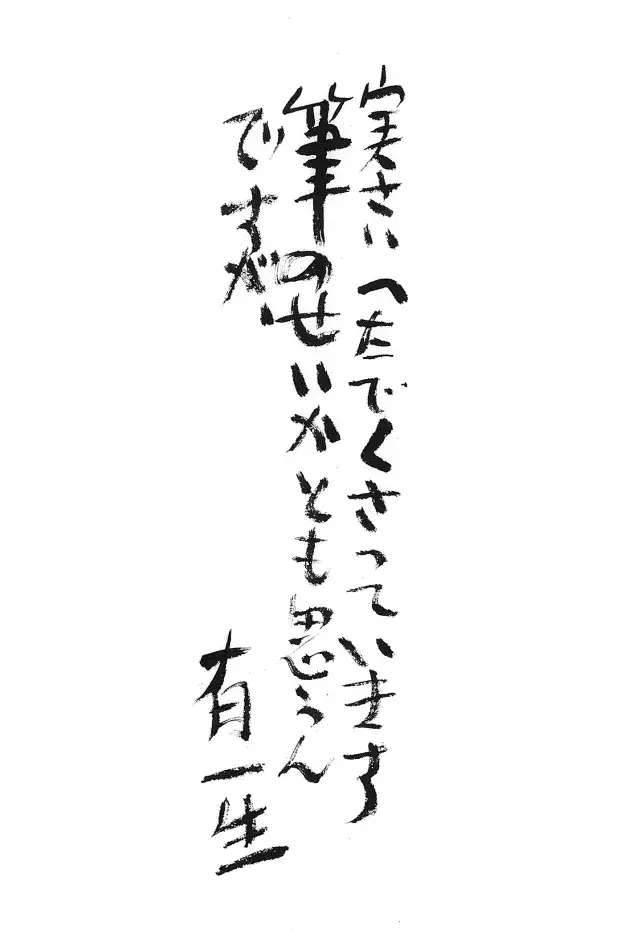 実さいへたでくさっています
筆のせいかとも思うん
ですが、
有一生